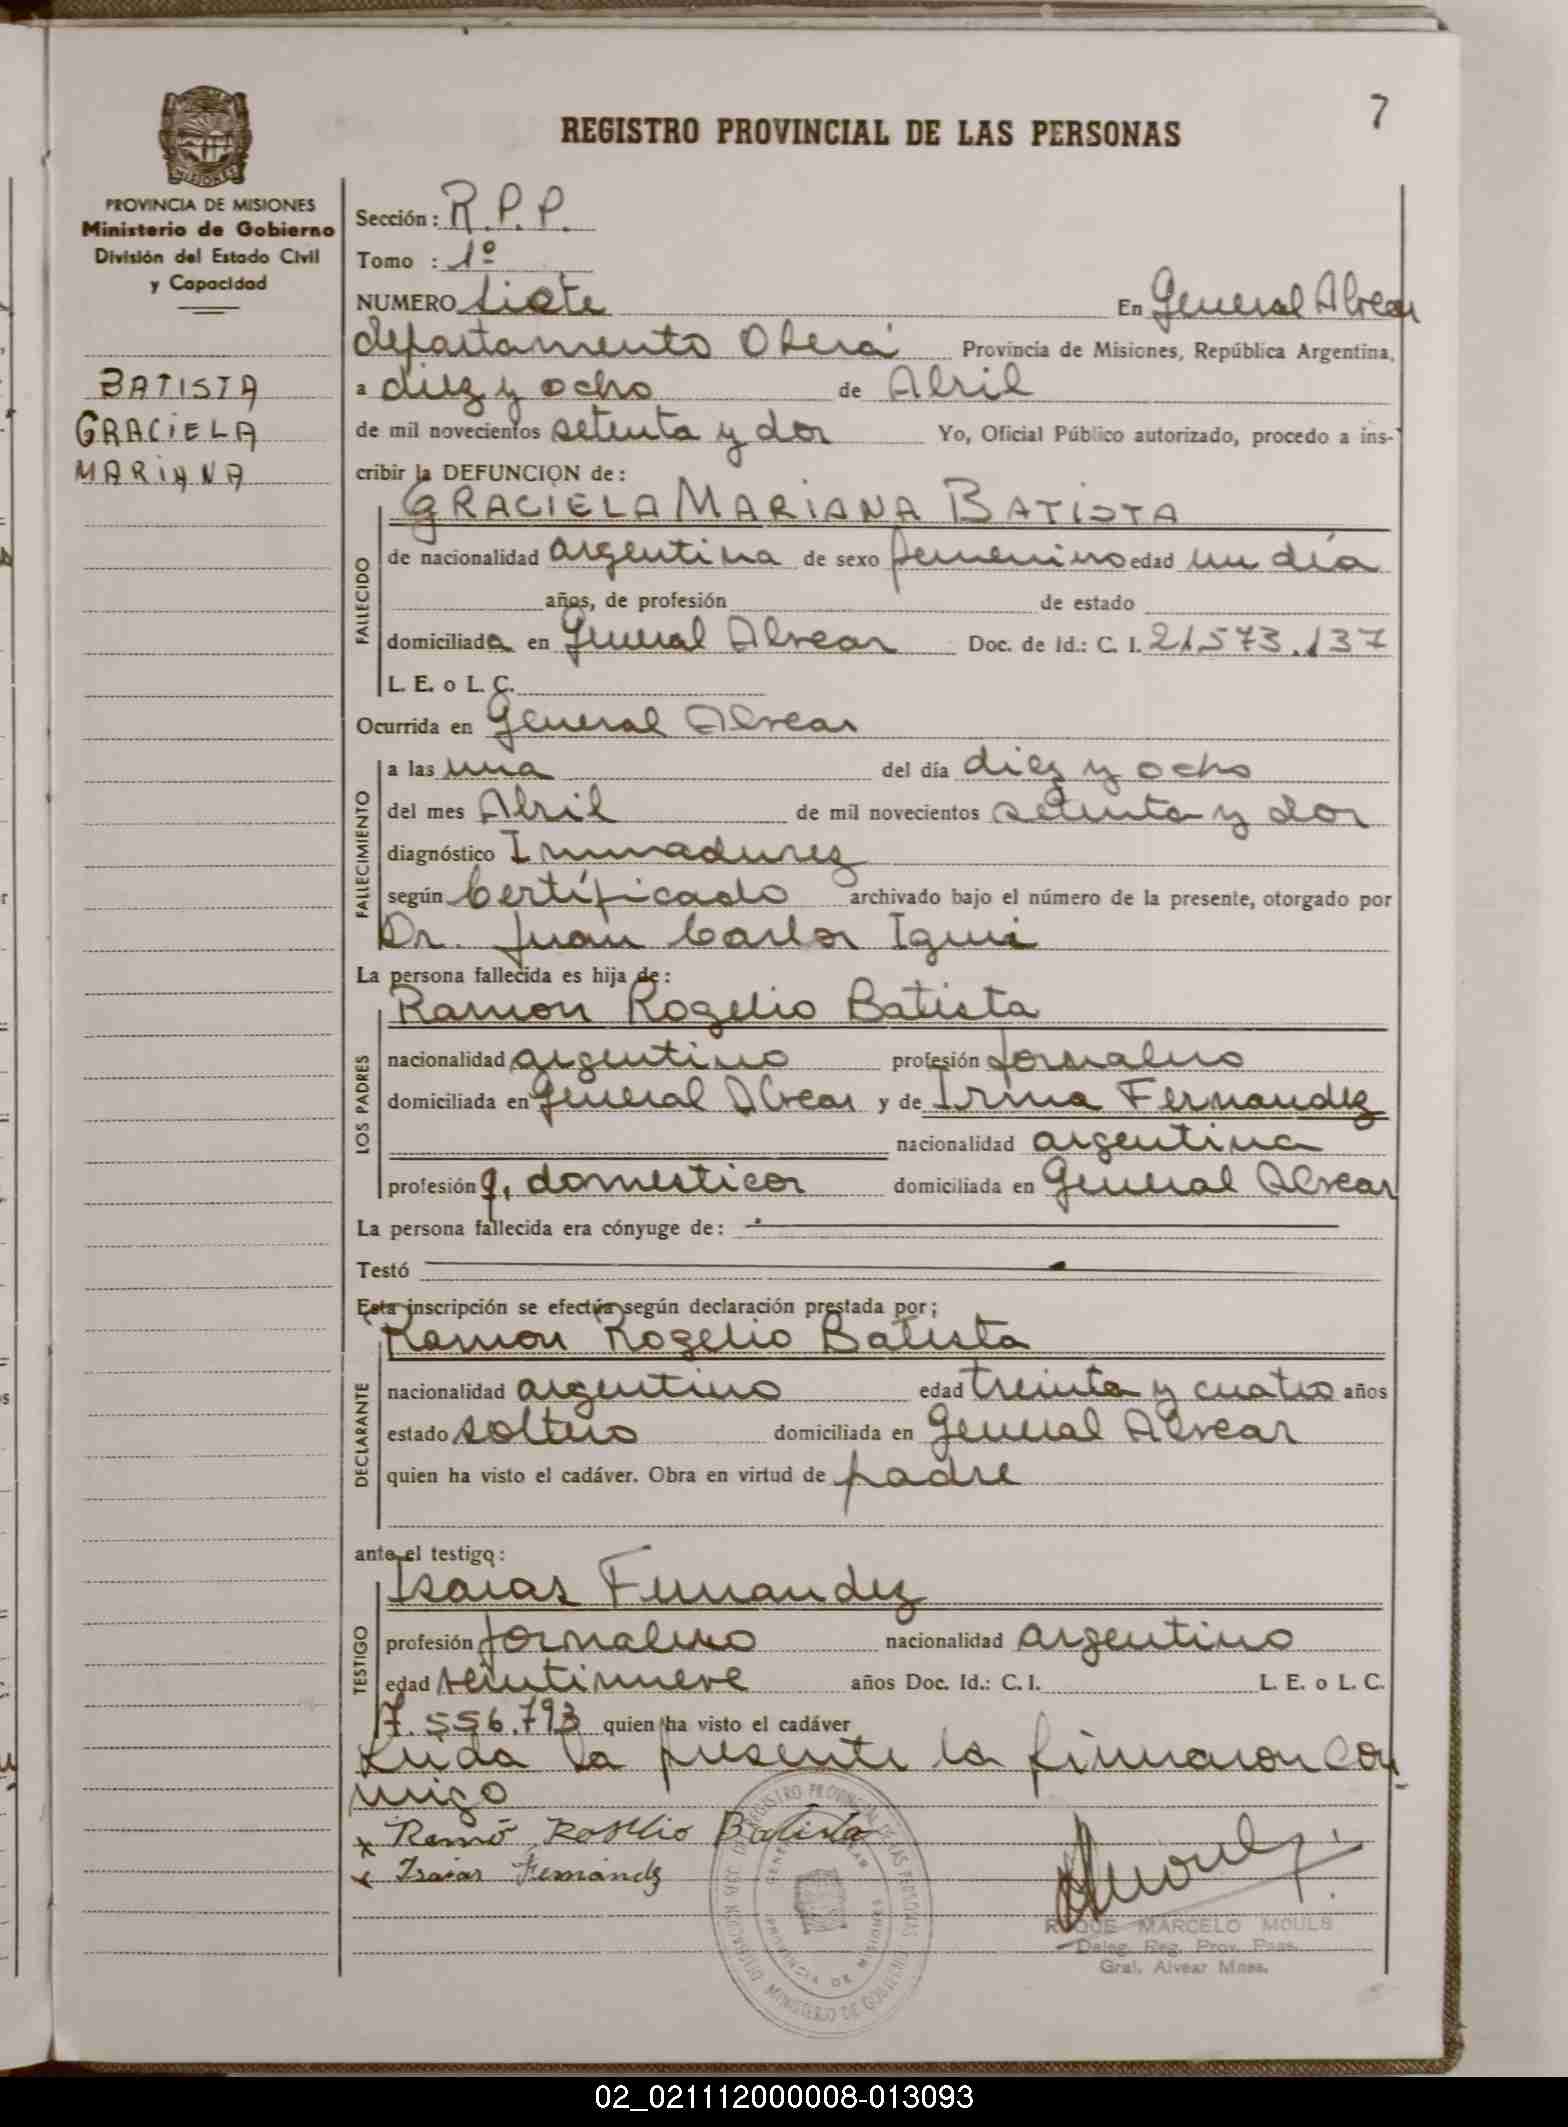 7
REGISTRO PROVINCIAL DE LAS PERSONAS
MISIONES
PROVINCIA DE MISIONES
Ministerio de Gobierno
División del Estado Civil
y Capacidad
BATISTA
GRACIELA
MARIANA
Sección: R.P.P.
Tomo : 1º
NUMERO Siete En General Alvear
departamento Oberá Provincia de Misiones, República Argentina,
a diez y ocho de Abril
de mil novecientos setenta y dos Yo, Oficial Público autorizado, procedo a ins-
cribir la DEFUNCION de:
GRACIELA MARIANA BATISTA
FALLECIDO
de nacionalidad argentina de sexo femenino edad un día
años, de profesión de estado
domiciliada en General Alvear Doc. de Id.: C. I. 21.573.137
L. E. o L. C.
Ocurrida en General Alvear
FALLECIMIENTO
a las una del día diez y ocho
del mes Abril de mil novecientos setenta y dos
diagnóstico Inmadurez
según Certificado archivado bajo el número de la presente, otorgado por
Dr. Juan Carlos
La persona fallecida es hija de:
Ramon Rogelio Batista
LOS PADRES
nacionalidad argentino profesión jornalero
domiciliada en General Alvear y de Irma Fernandez
nacionalidad argentina
profesión q. domesticos domiciliada en General Alvear
La persona fallecida era cónyuge de:
Testó
Esta inscripción se efectúa según declaración prestada por;
Ramon Rogelio Batista
DECLARANTE
nacionalidad argentino edad treinta y cuatro años
estado soltero domiciliada en General Alvear
quien ha visto el cadáver. Obra en virtud de padre
ante el testigo:
Isaias Fernandez
TESTIGO
profesión jornalero nacionalidad argentino
edad veintinueve años Doc. Id.: C. I. L. E. o L. C.
7.556.793 quien ha visto el cadáver
Leida la presente la firmaron con-
migo
x Ramó Roselio Batista
x Isaias Fernandz
ROQUE MARCELO MOULS
Deleg. Reg. Prov. Pnas.
Gral. Alvear Mnes.
REGISTRO PROVINCIAL DE LAS PERSONAS
MINISTERIO DE GOBIERNO
PROVINCIA DE MISIONES
02_021112000008-013093